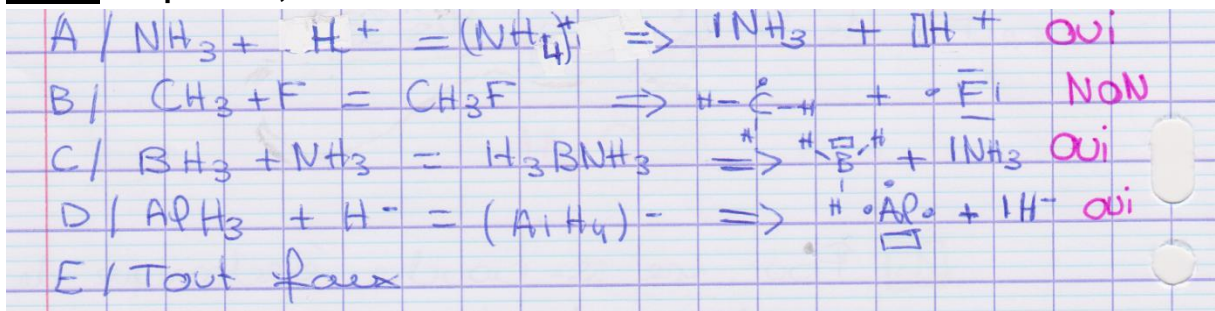 A / NH3 + H+ = (NH4)+ => |NH3 + □H+ OUI
B / CH3 + F = CH3F => H-C-H H + • F| NON
C / BH3 + NH3 = H3BNH3 => H B H H + |NH3 OUI
D / AlH3 + H- = (AlH4)- => • Al • + |H- OUI
E / Tout faux